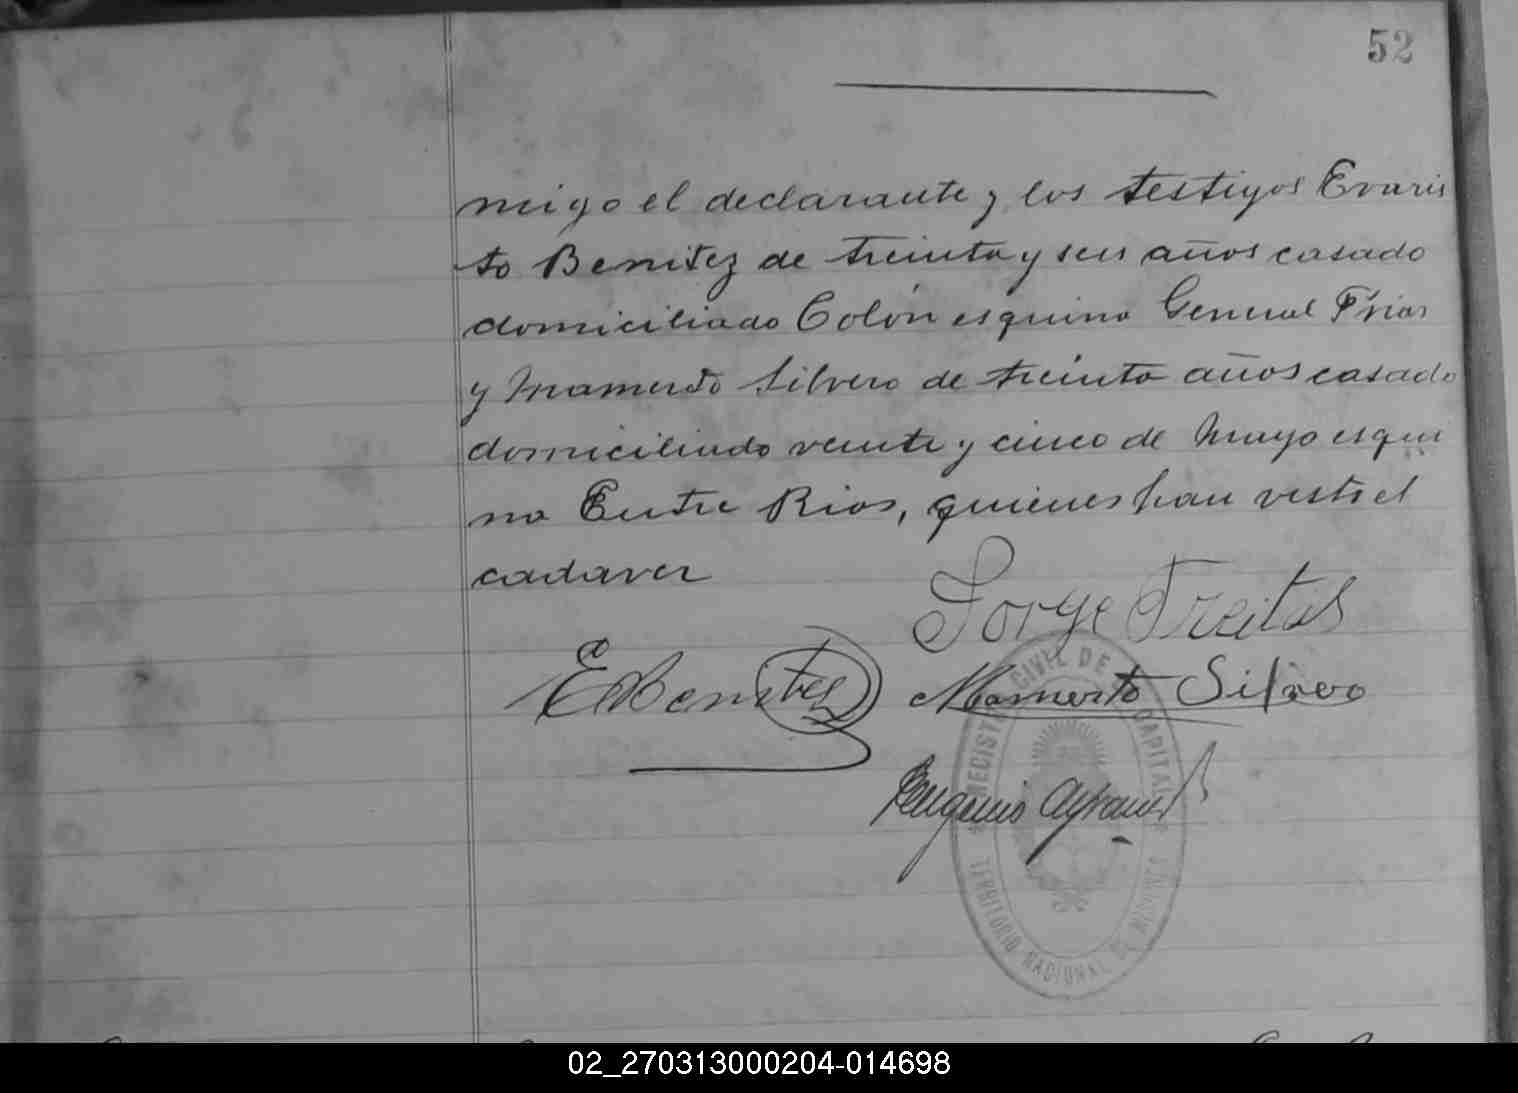 52
migo el declarante y los testigos Evaris
to Benitez de treinta y seis años casado
domiciliado Colón esquina General Frias
y Mamerto Silvero de treinta años casado
domiciliado veinte y cinco de Mayo esqui
na Entre Rios, quienes han visto el
cadaver
Jorge Freitas
E Benitez
Mamerto Silvero
Eugenio
REGISTRO CIVIL DE LA CAPITAL
TERRITORIO NACIONAL DE MISIONES
02_270313000204-014698